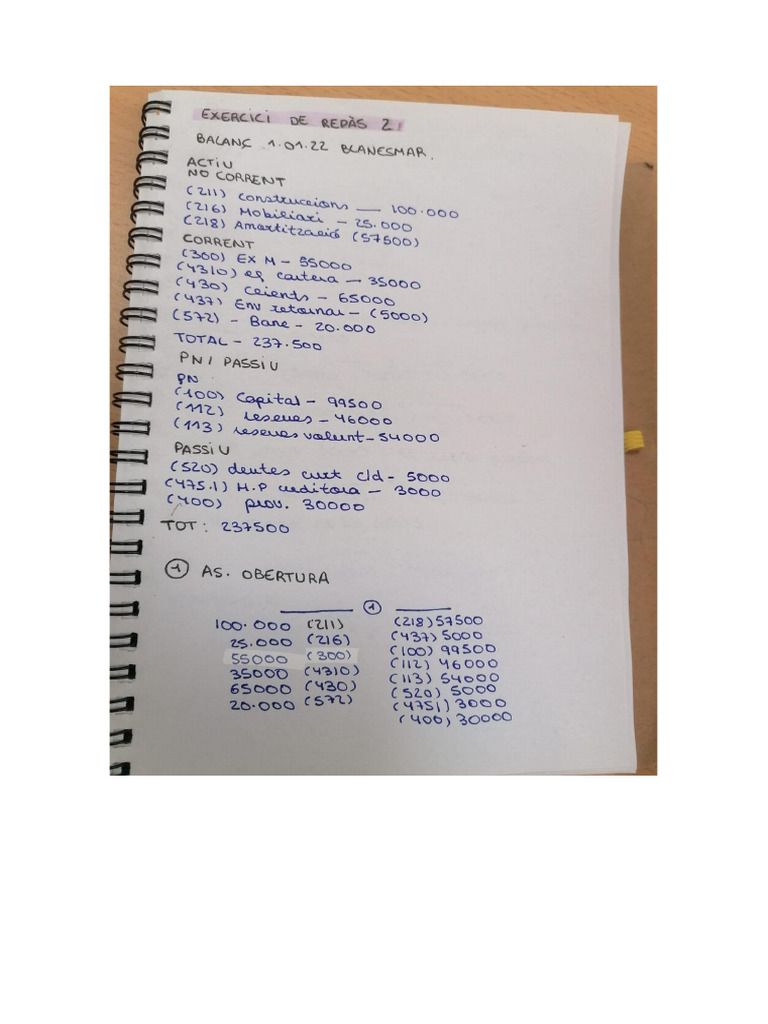 EXERCICI DE REPÀS 2:
BALANÇ 1.01.22 BLANESMAR.
ACTIU
NO CORRENT
(211) Construccions — 100.000
(216) Mobiliari - 25.000
(218) Amortització (57500)
CORRENT
(300) EX M - 55000
(4310) ef cartera — 35000
(430) Clients - 65000
(437) Env retornar - (5000)
(572) - Banc - 20.000
TOTAL - 237.500
PN / PASSIU
PN
(100) Capital - 99500
(112) reserves - 46000
(113) reserves volunt - 54000
PASSIU
(520) deutes curt c/d - 5000
(475.1) H.P creditora - 3000
(400) prov. 30000
TOT: 237500
1 AS. OBERTURA
1
100.000 (211) (218) 57500
25.000 (216) (437) 5000
55000 (300) (100) 99500
35000 (4310) (112) 46000
65000 (430) (113) 54000
20.000 (572) (520) 5000
(4751) 3000
(400) 30000